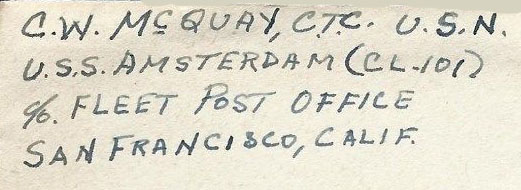 C.W. McQUAY, C.T.C. U.S.N.
U.S.S. AMSTERDAM (CL-101)
c/o. FLEET POST OFFICE
SAN FRANCISCO, CALIF.